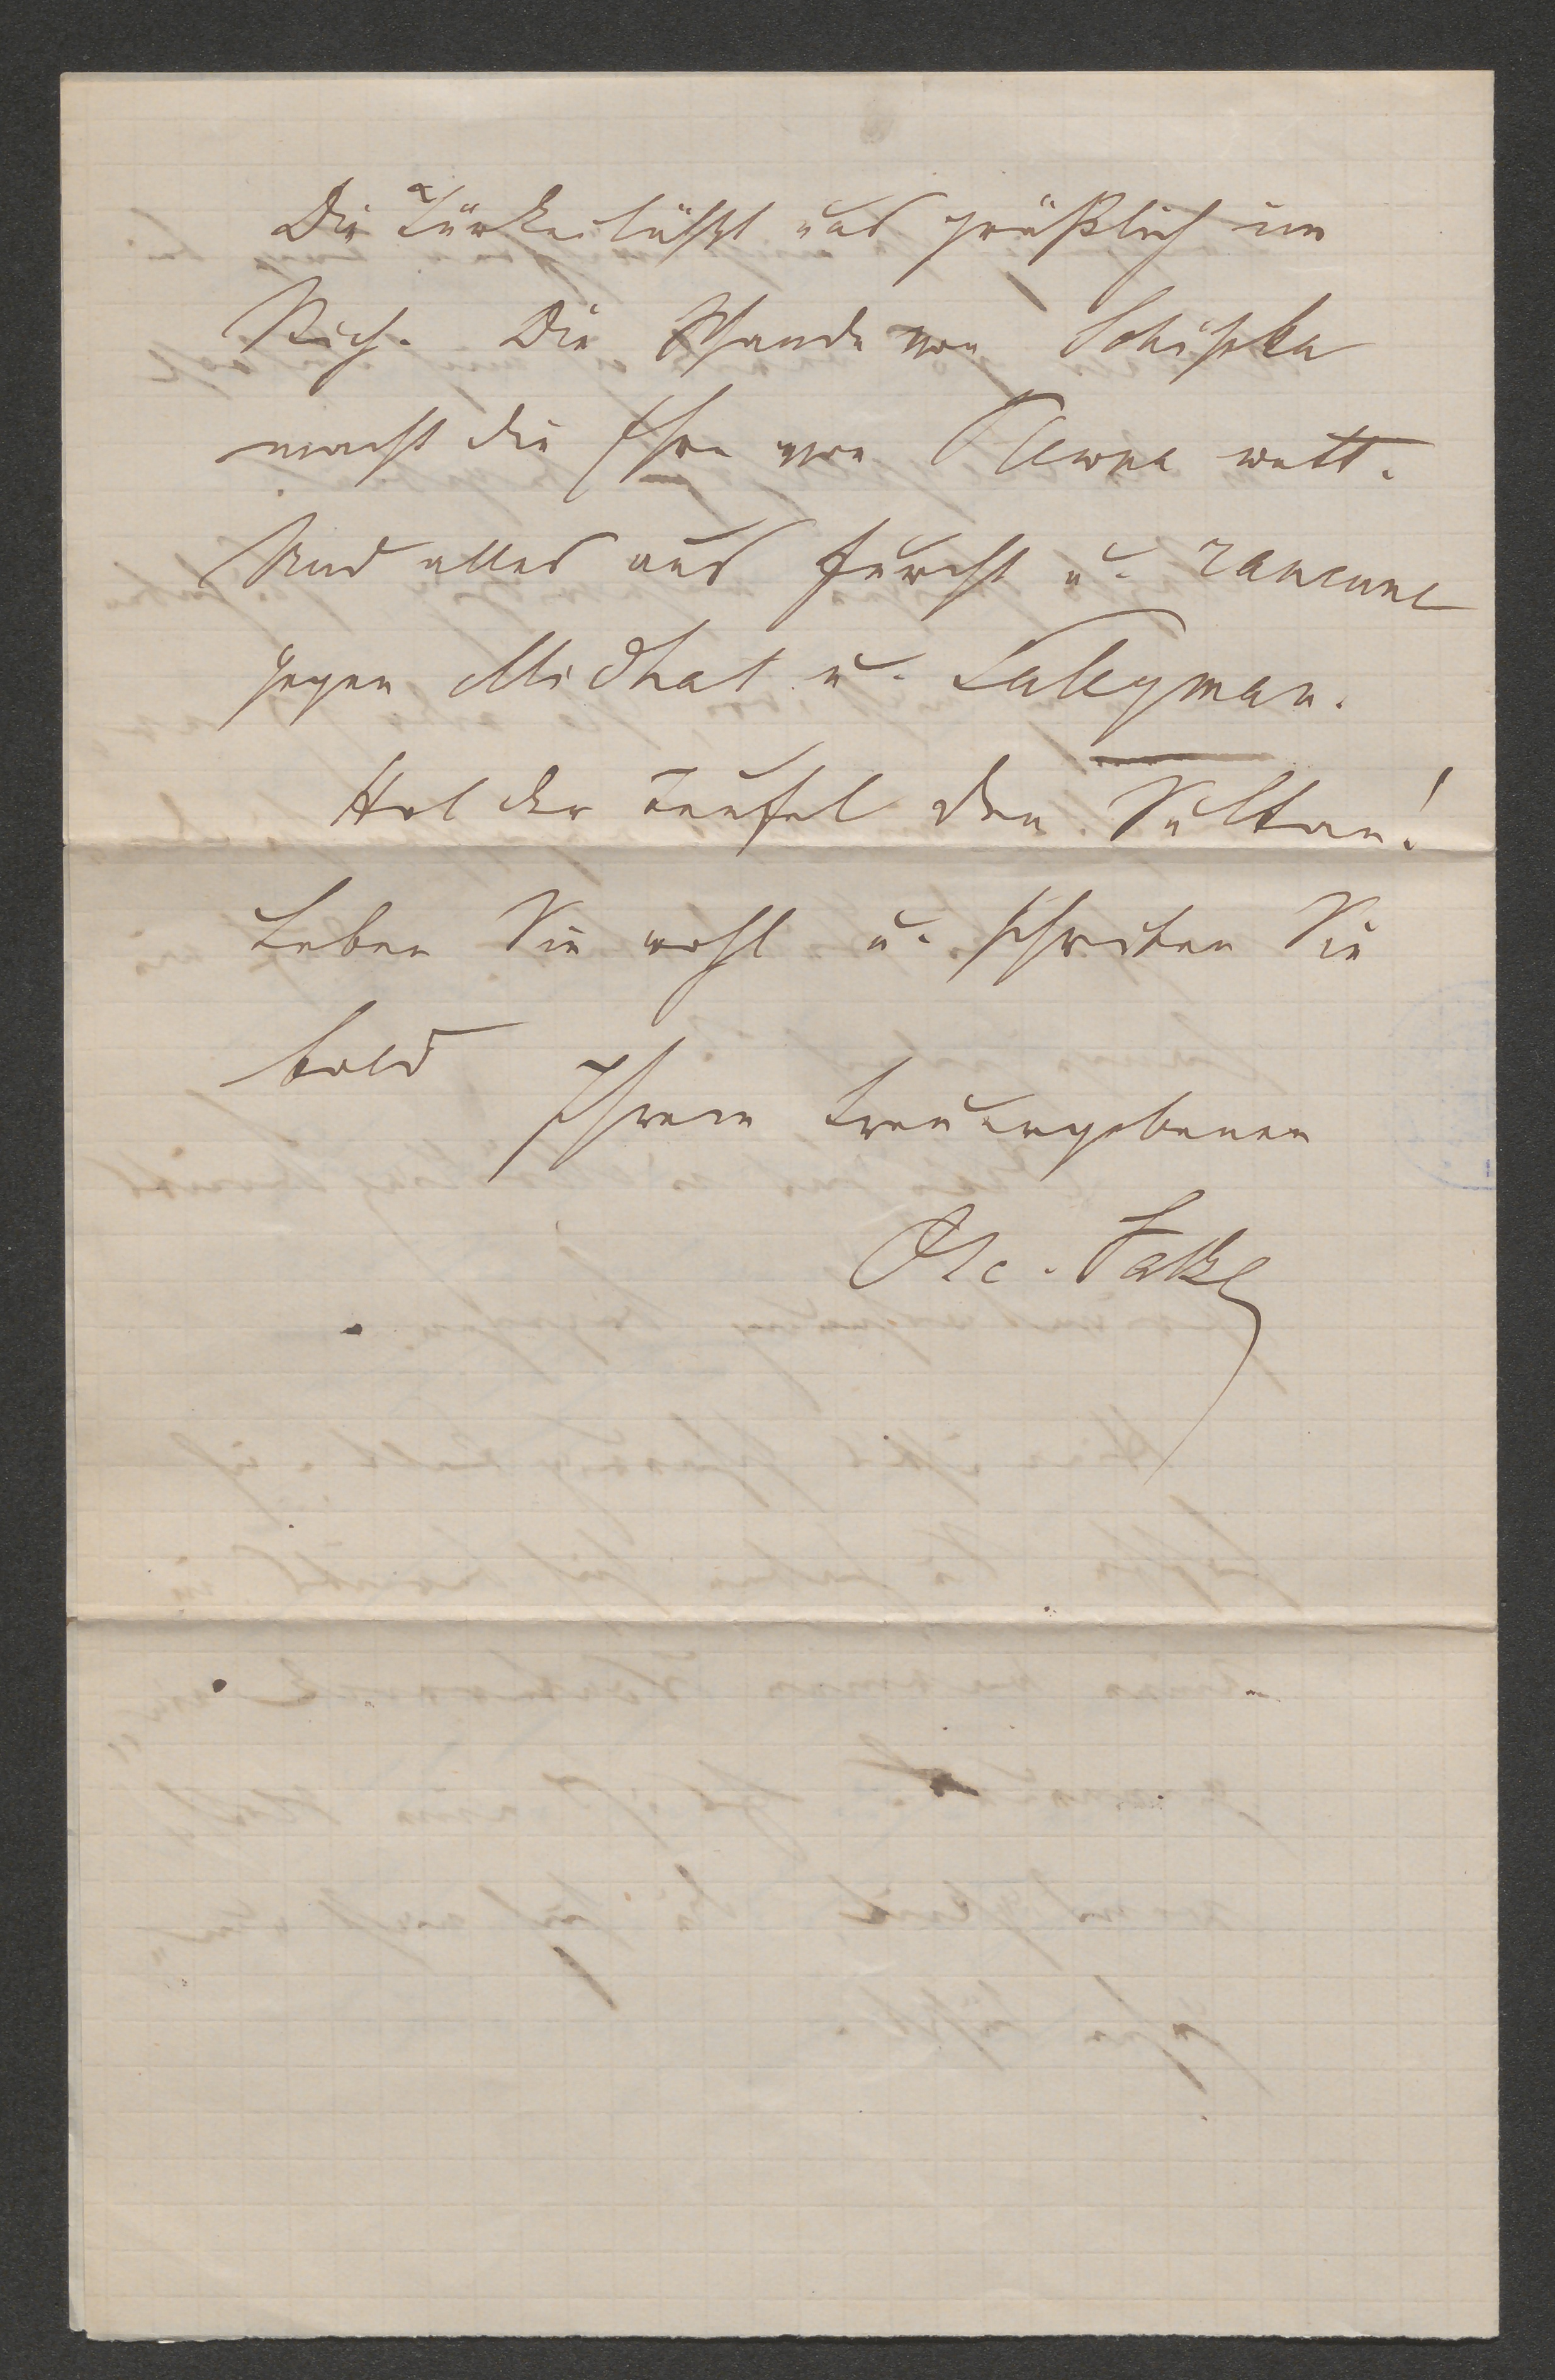 Die Türkei läßt uns gräßlich im
Stich. Die Schande von Schipka
macht die Ehre von Plewna wett.
Und alles aus Furcht u. rancune
gegen Midhat u. Suleyman.
Hol der Teufel den Sultan!
Leben Sie wohl u. schreiben Sie
bald
Ihrem treuergebenen